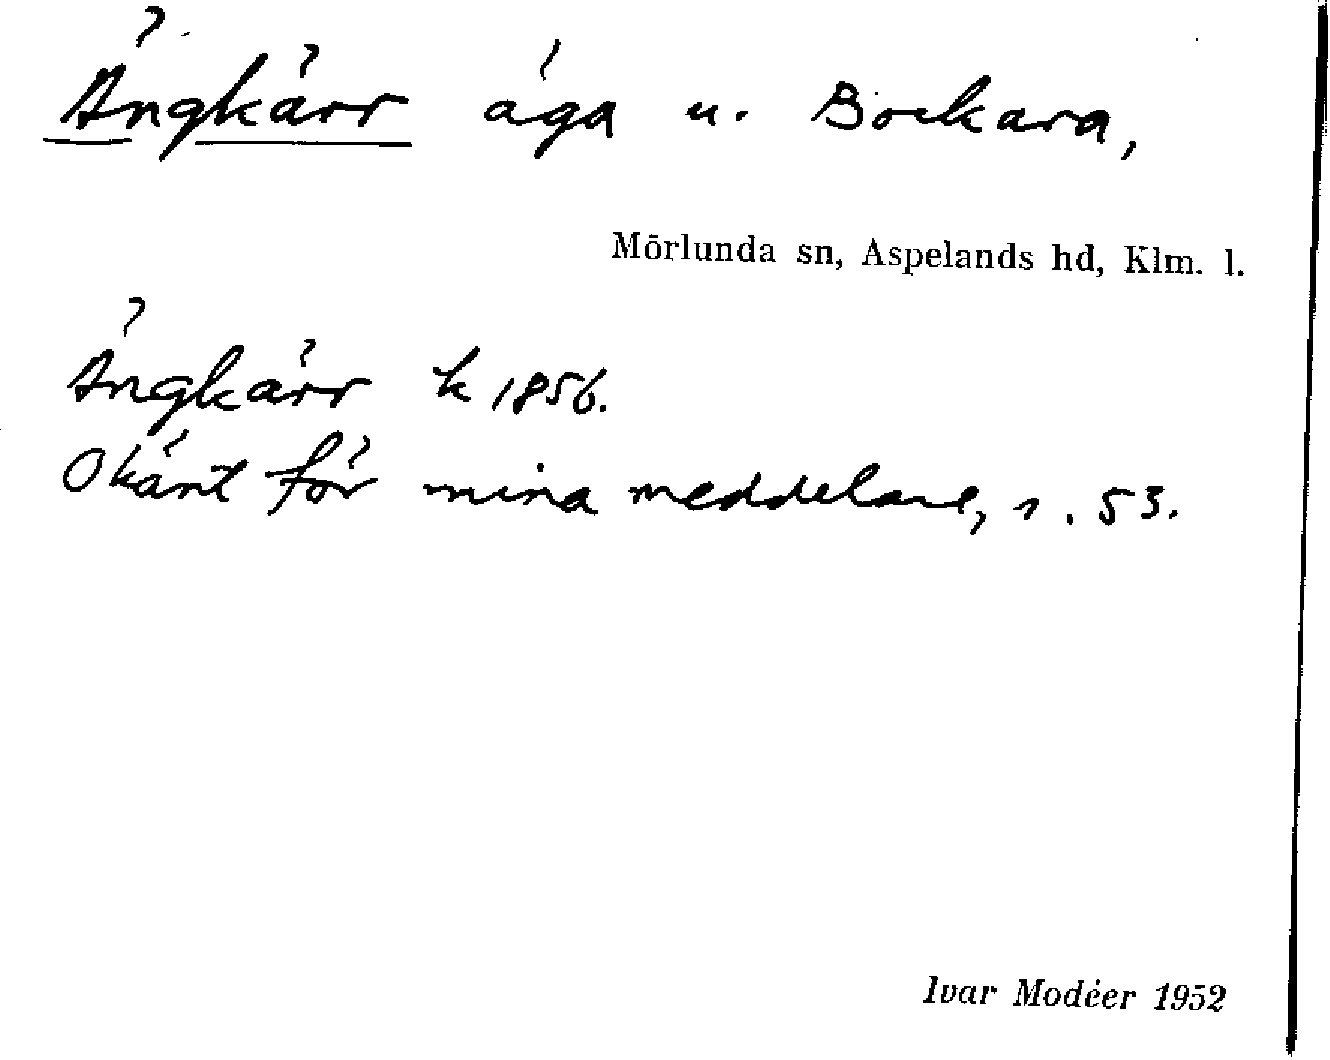 Ängkärr äga u. Bockara,
Mörlunda sn, Aspelands hd, Klm. l.
Ängkärr k 1856.
Okänt för mina meddelare, s. 53.
Ivar Modéer 1952